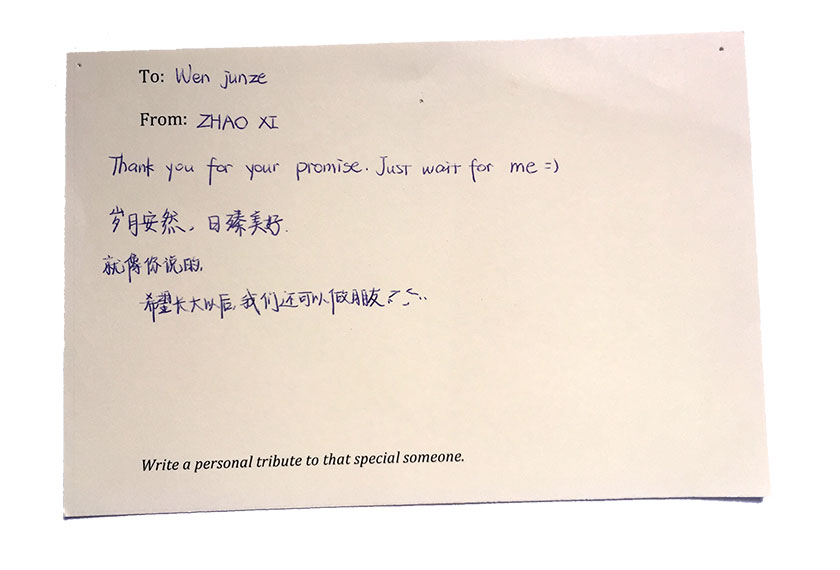 To: Wen junze
From: ZHAO XI
Thank you for your promise. Just wait for me =)
岁月安然，日臻美好.
就像你说的,
希望长大以后,我们还可以做朋友
Write a personal tribute to that special someone.